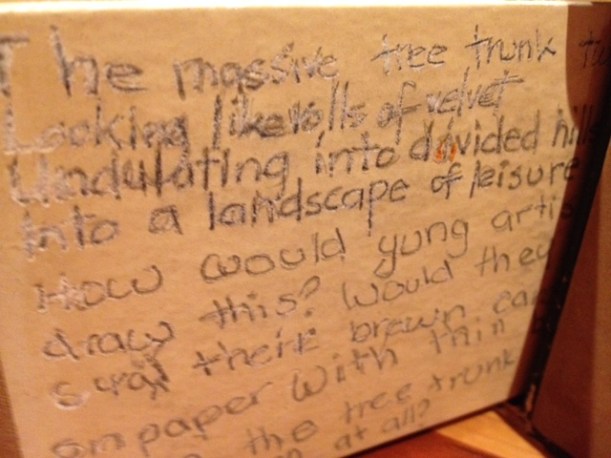 The massive tree trunk
Looking like rolls of velvet
Undulating into divided
Into a landscape of leisure
How would yung
draw this? Would they
their brown
on paper with thin
the tree trunk
at all?